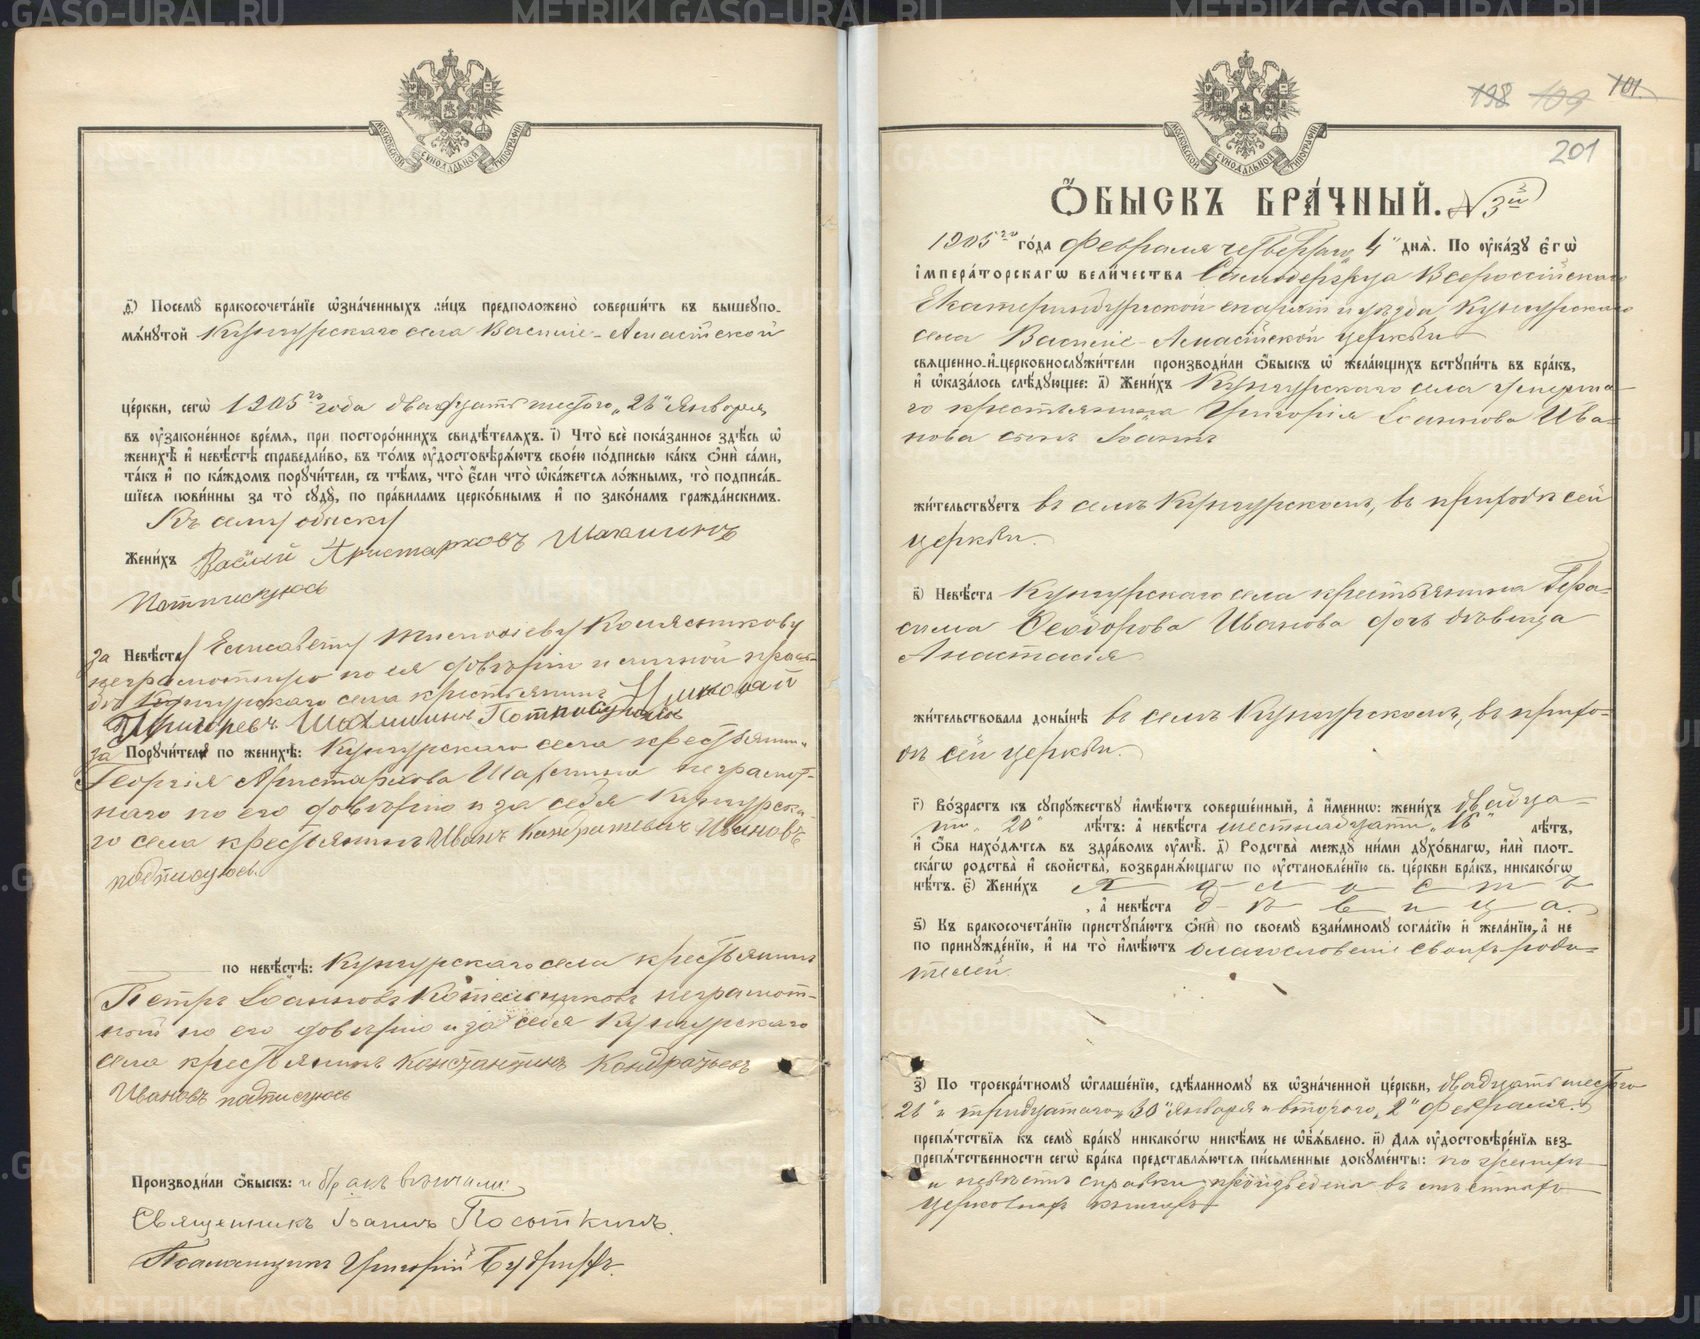 МОСКОВСКОЙ СѴНОДАЛЬНОЙ ТИПОГРАФІИ
д҃) Посемꙋ бракосочета́нїе ѡ҆зна́ченныхъ ли́цъ предположено̀ соверши́ть въ вышеупо-
мѧ́нутой Кунгурскаго села Василіе-Амасійской
це́ркви, сегѡ̀ 1905го года двадцать шестого „26" Января,
въ ᲂу҆зако́ненное вре́мѧ, при посторо́ннихъ свидѣ́телѧхъ. і҃) Что̀ всѐ пока́занное здѣ́сь ѡ҆
женихѣ̀ и҆ невѣ́стѣ справедли́во, въ то́мъ ᲂу҆достовѣрѧ́ютъ свое́ю по́дписью ка́къ Ѻ҆нѝ са́ми,
та́къ и҆ по ка́ждомъ поручи́тели, съ тѣ́мъ, что̀ є҆́сли что̀ ѡ҆ка́жетсѧ ло́жнымъ, то̀ подписа́в-
шїесѧ пови́нны за то̀ сꙋдꙋ̀, по пра́виламъ церко́внымъ и҆ по зако́намъ гражда́нскимъ.
Къ сему обыску
Жени́хъ Василій Аристарховъ Шахминъ
Потписуюсь
за Невѣ́стꙋ Елисавету Тимофіеву Колясникову
неграмотную по ея довѣрію и личной прось-
бѣ Кунгурскаго села крестьянинъ Николай
Григорьевъ Шахминъ Потписуюсь
за Порꙋчи́телѧ по женихѣ̀: Кунгурскаго села крестьянина
Георгія Аристархова Шахмина неграмот-
наго по его довѣрію и за себя Кунгурска-
го села крестьянинъ Иванъ Кондратьевичъ Ивановъ
подписуюсь.
по невѣ́стѣ: Кунгурскаго села крестьянинъ
Петръ Іоанновъ Котельниковъ неграмот-
ной по его довѣрію и за себя Кунгурскаго
села крестьянинъ Константинъ Кондратьевъ
Ивановъ подписуюсь
Производи́ли ѻ҆́быскъ: и бракъ вѣнчали:
Священникъ Іоаннъ Посоткинъ.
Псаломщикъ Григорій
198 109 101
201
МОСКОВСКОЙ СѴНОДАЛЬНОЙ ТИПОГРАФІИ
Ѻ҆́БЫСКЪ БРА́ЧНЫЙ. № 3й
1905го го́да Февраля четвертаго „4" днѧ̀. По ᲂу҆ка́зꙋ є҆гѡ̀
і҆мпера́торскагѡ вели́чества Самодержца Всероссійскаго
Екатеринбургской епархіи и уѣзда Кунгурскаго
села Василіе-Амасійской церкви
свѧще́нно-и҆-церковнослꙋжи́тели производи́ли ѻ҆́быскъ ѡ҆ жела́ющихъ встꙋпи́ть въ бра́къ,
и҆ ѡ҆каза́лось слѣ́дꙋющее: а҃) Жени́хъ Кунгурскаго села умерша-
го крестьянина Григорія Іоаннова Ива-
нова сынъ Іоаннъ
жи́тельствꙋетъ въ селѣ Кунгурскомъ, въ приходѣ сей
церкви.
в҃) Невѣ́ста Кунгурскаго села крестьянина Гера-
сима Ѳеодорова Иванова дочь дѣвица
Анастасія
жи́тельствовала доны́нѣ въ селѣ Кунгурскомъ, въ прихо-
дѣ сей церкви.
г҃) Во́зрастъ къ сꙋпрꙋ́жествꙋ и҆мѣ́ютъ соверше́нный, а҆ и҆́меннѡ: жени́хъ двадца-
ти „20" лѣ́тъ: а҆ невѣ́ста шестнадцати „16" лѣ́тъ,
и҆ Ѻ҆́ба нахо́дѧтсѧ въ здра́вомъ ᲂу҆мѣ̀. д҃) Родства̀ междꙋ̀ ни́ми дꙋхо́внагѡ, и҆лѝ плот-
ска́гѡ родства̀ и҆ сво́йства, возбранѧ́ющагѡ по ᲂу҆становле́нїю св. це́ркви бра́къ, никако́гѡ
нѣ́тъ. є҃) Жени́хъ холостъ
, а҆ невѣ́ста дѣвица.
ѕ҃) Къ бракосочета́нїю пристꙋпа́ютъ Ѻ҆нѝ по своемꙋ̀ взаи́мномꙋ согла́сїю и҆ жела́нїю, а҆ не
по принꙋжде́нїю, и҆ на то̀ и҆мѣ́ютъ благословеніе своихъ роди-
телей.
з҃) По троекра́тномꙋ ѡ҆глаше́нїю, сдѣ́ланномꙋ въ ѡ҆зна́ченной це́ркви, двадцать шестого
26" и тридцатаго „30" января и второго „2" Февраля.
препѧ́тствїѧ къ семꙋ̀ бра́кꙋ никако́гѡ никѣ́мъ не ѡ҆б̾ѧ́влено. и҃) Длѧ ᲂу҆достовѣре́нїѧ без-
препѧ́тственности сегѡ̀ бра́ка представлѧ́ютсѧ пи́сьменные докꙋме́нты: по женихѣ
и невѣстѣ справки произведена въ мѣстныхъ
церковныхъ книгахъ